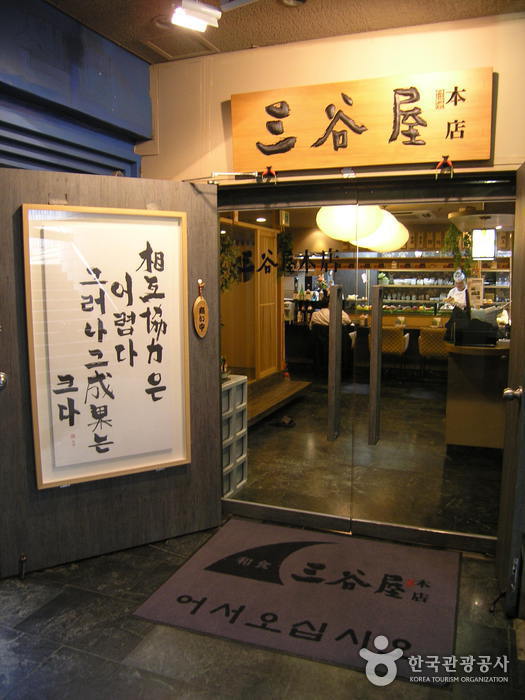 三谷屋 本店
相互協力은
어렵다
그러나그成果는
크다
三谷屋本店
和食
三谷屋 本店
어서오십시오
한국관광공사
KOREA TOURISM ORGANIZATION